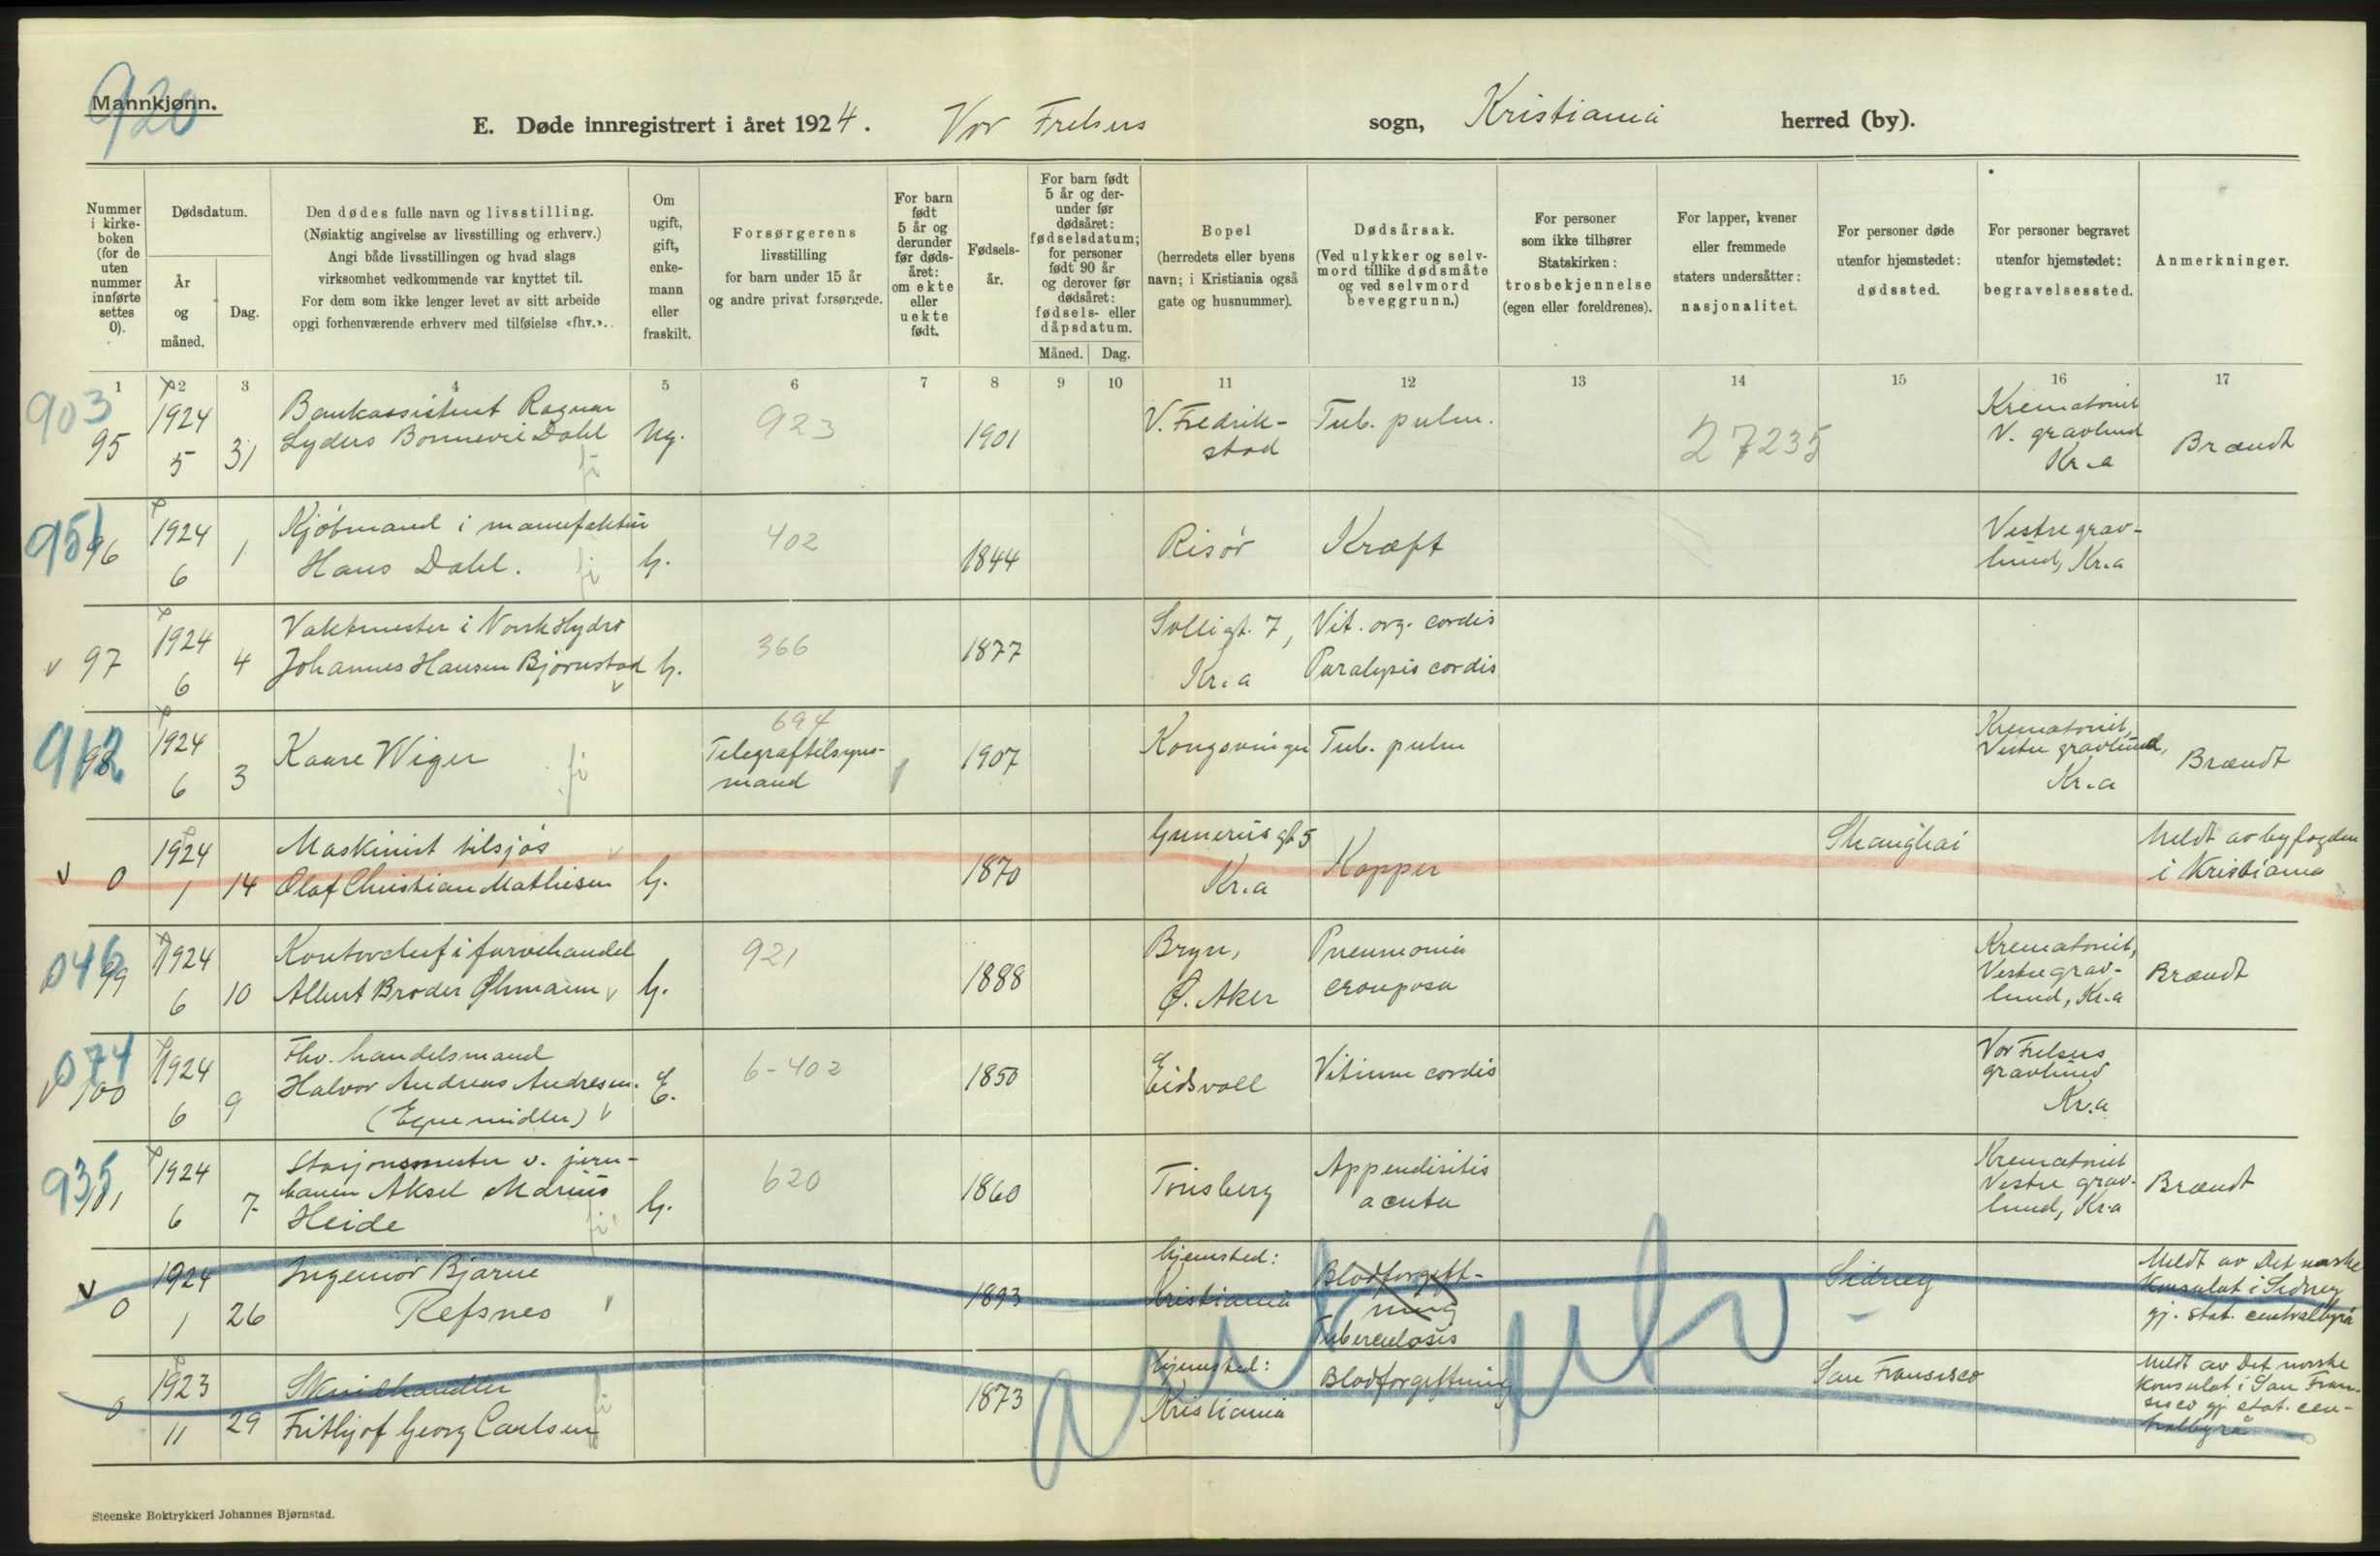 920
Mannkjønn.
E. Døde innregistrert i året 1924. Vor Frelsers sogn, Kristiania herred (by).
Nummer i kirke- boken (for de uten nummer innførte settes 0).
Dødsdatum.
År og måned.
Dag.
Den dødes fulle navn og livsstilling.
(Nøiaktig angivelse av livsstilling og erhverv.)
Angi både livsstillingen og hvad slags
virksomhet vedkommende var knyttet til.
For dem som ikke lenger levet av sitt arbeide
opgi forhenværende erhverv med tilføielse «fhv.».
Om ugift, gift, enke- mann eller fraskilt.
Forsørgerens
livsstilling
for barn under 15 år
og andre privat forsørgede.
For barn født 5 år og derunder før døds- året: om ekte eller uekte født.
Fødsels- år.
For barn født 5 år og der- under før dødsåret: fødselsdatum; for personer født 90 år og derover før dødsåret: fødsels- eller dåpsdatum.
Måned. Dag.
Bopel
(herredets eller byens
navn; i Kristiania også
gate og husnummer).
Dødsårsak.
(Ved ulykker og selv-
mord tillike dødsmåte
og ved selvmord
beveggrunn.)
For personer
som ikke tilhører
Statskirken:
trosbekjennelse
(egen eller foreldrenes).
For lapper, kvener
eller fremmede
staters undersåtter:
nasjonalitet.
For personer døde
utenfor hjemstedet:
dødssted.
For personer begravet
utenfor hjemstedet:
begravelsessted.
Anmerkninger.
1 2 3 4 5 6 7 8 9 10 11 12 13 14 15 16 17
903
95
1924
5
31
Bankassistent Ragnar
Lyders Bonnevie Dahl
Ug.
923
1901
V. Fredrik-
stad
Tub. pulm.
27235
Krematoriet
V. gravlund
Kr.a
Brændt
951
96
1924
6
1
Kjøbmand i manufaktur
Hans Dahl.
G.
402
1844
Risør
Kræft
Vestre grav-
lund, Kr.a
v 97
1924
6
4
Vaktmester i Norsk Hydro
Johannes Hansen Bjørnstad
G.
366
1877
Solligt. 7,
Kr.a
Vit. org. cordis
Paralysis cordis
912
98
1924
6
3
Kaare Wiger
694
Telegraftilsyns-
mand
1907
Kongsvinger
Tub. pulm
Krematoriet,
Vestre gravlund,
Kr.a
Brændt
v 0
1924
1
14
Maskinist tilsjøs
Olaf Christian Mathisen
G.
1870
Gunerius gt 5
Kr.a
Kopper
Shanghai
Meldt av byfogden
i Kristiania
046
99
1924
6
10
Kontorchef i farvehandel
Albert Broder Øhmann v
G.
921
1888
Bryn,
Ø. Aker
Pneumonia
crouposa
Krematoriet,
Vestre grav-
lund, Kr.a
Brændt
074
v 100
1924
6
9
Fhv. handelsmand
Halvor Andreas Andresen.
(Egne midler) v
E.
6-402
1850
Eidsvoll
Vitium cordis
Vor Frelsers
gravlund
Kr.a
935
101
1924
6
7
Stasjonsmester v. jern-
banen Aksel Marius
Heide
G.
620
1860
Tønsberg
Appendisitis
acuta
Krematoriet
Vestre grav-
lund, Kr.a
Brændt
v 0
1924
1
26
Ingeniør Bjarne
Refsnes
1893
hjemsted:
Kristiania
Blodforgift-
ning
Tuberculosis
Sidney
Meldt av Det norske
Konsulat i Sidney
gj. stat. centralbyrå
0
1923
11
29
Skindhandler
Frithjof Georg Carlsen
1873
hjemsted:
Kristiania
Blodforgiftning
San Fransisco
Meldt av Det norske
Konsulat i San Fran-
sisco gj. stat. cen-
tralbyrå
Steenske Boktrykkeri Johannes Bjørnstad.